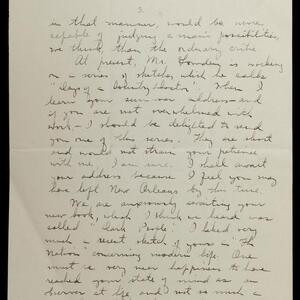 3.
in that manner, would be more
capable of judging a man's possibilities,
we think, than the ordinary critic.
At present, Mr. is working
on a series of sketches which he calls
"Days of a Country Doctor." When I
learn your summer address and
if you are not overwhelmed with
work – I should be delighted to send
you one of this series. They are short
and would not strain your patience
with me, I am sure. I shall await
your address because I feel you may
have left New Orleans by this time.
We are anxiously awaiting your
new book, which I think we heard was
called "Dark People". I liked very
much a recent sketch of yours in "The
Nation" concerning modern life. One
must be very near happiness to have
reached your state of mind as an
observer at life, and not so much a